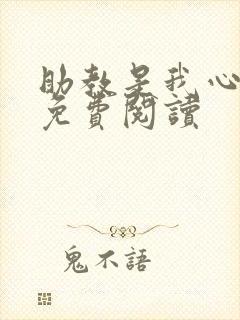 助教是我心
免費閱讀
鬼不語